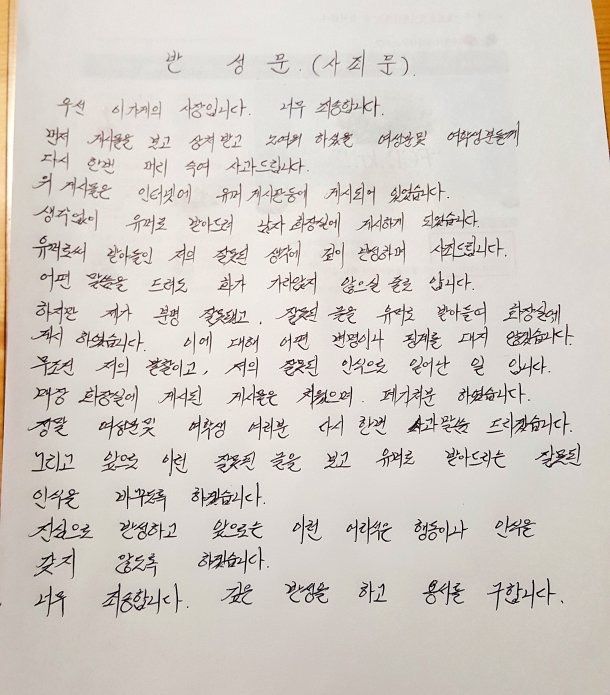 반 성 문.(사죄문).
우선 이가게의 사장입니다. 너무 죄송합니다.
먼저 게시물을 보고 상처받고 노여워 하셨을 여성분및 여학생분들께
다시 한번 머리 숙여 사과드립니다.
위 게시물은 인터넷에 유머 게시판등에 게시되어 있었습니다.
생각없이 유머로 받아드려 남자 화장실에 게시하게 되었습니다.
유머로써 받아들인 저의 잘못된 생각에 깊이 반성하며 사죄드립니다.
어떤 말씀을 드려도 화가 가라앉지 않으실 줄로 압니다.
하지만 제가 분명 잘못됐고, 잘못된 글을 유머로 받아들여 화장실에
게시 하였습니다. 이에 대해 어떤 변명이나 핑계를 대지 않겠습니다.
무조건 저의 불찰이고, 저의 잘못된 인식으로 일어난 일 입니다.
매장 화장실에 게시된 게시물은 치웠으며, 폐기처분 하였습니다.
정말 여성분및 여학생 여러분 다시 한번 사과말씀 드리겠습니다.
그리고 앞으로 이런 잘못된 글을 보고 유머로 받아드리는 잘못된
인식을 바꾸도록 하겠습니다.
진심으로 반성하고 앞으로는 이런 어리석은 행동이나 인식을
갖지 않도록 하겠습니다.
너무 죄송합니다. 깊은 반성을 하고 용서를 구합니다.